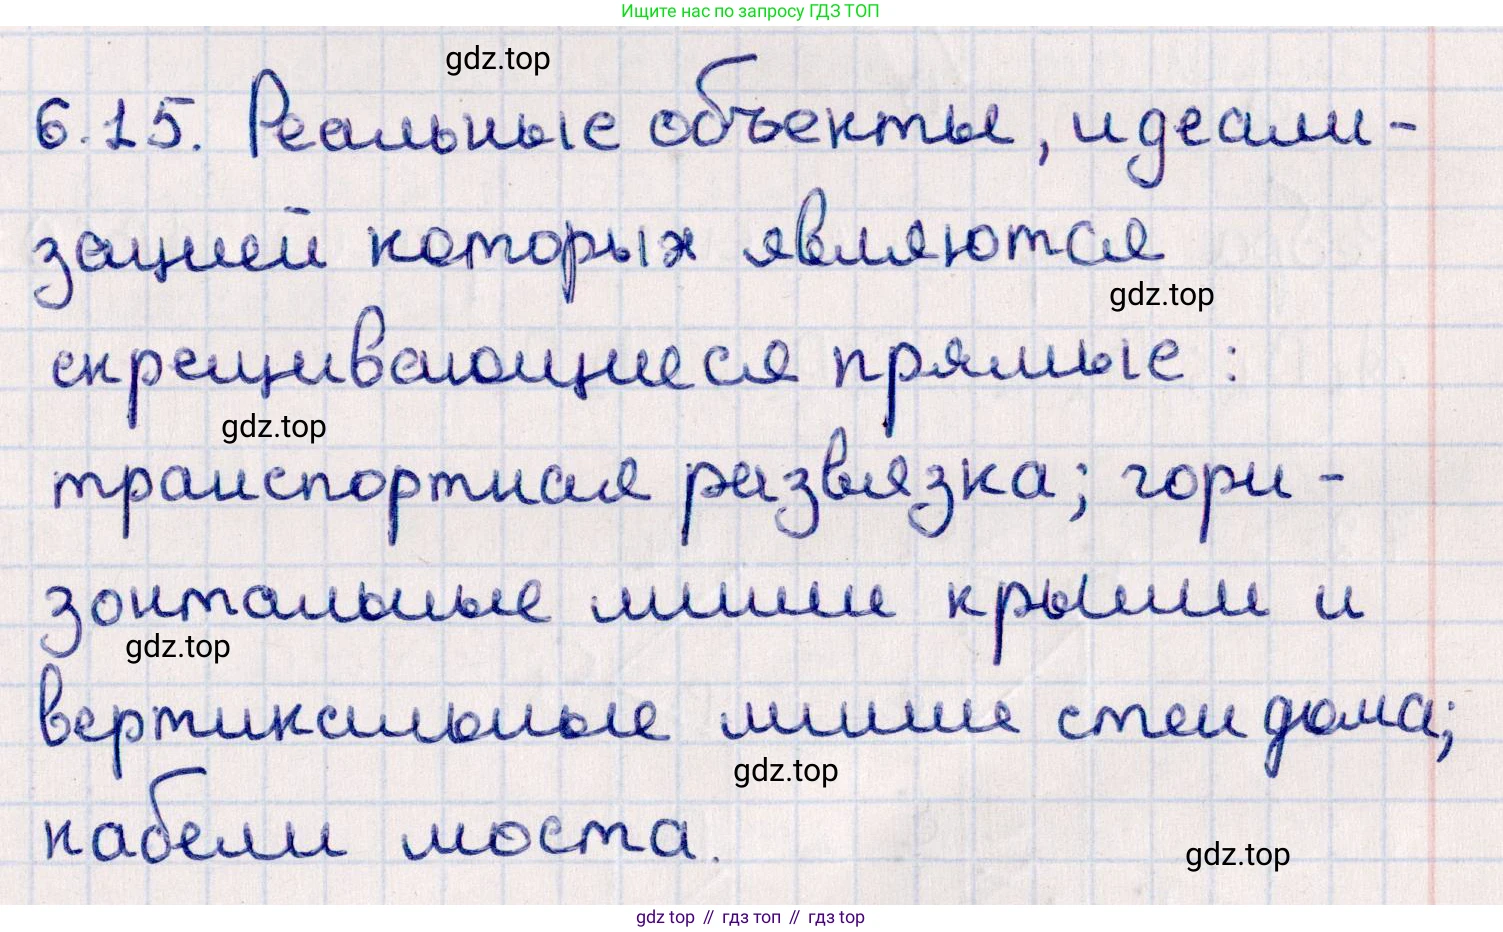 Ищите нас по запросу ГДЗ ТОП
gdz.top
6.15. Реальные объекты, идеали-
зацией которых являются
gdz.top
скрещивающиеся прямые:
gdz.top
транспортная развязка; гори-
зонтальные линии крыши и
gdz.top
вертикальные линии стен дома;
gdz.top
кабели моста.
gdz.top
gdz top // гдз топ // гдз top